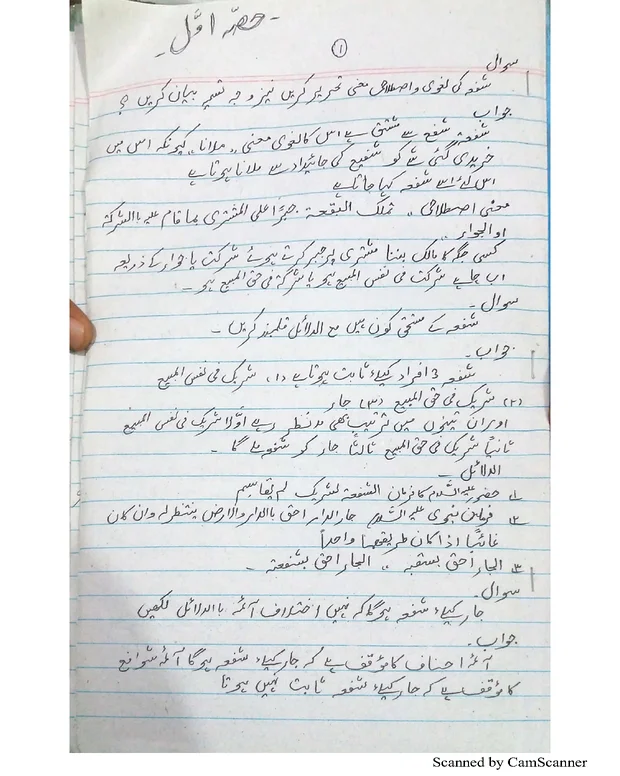 حصّہ اوّل
۱
سوال
شفعہ کی لغوی و اصطلاحی معنی تحریر کریں نیز وجہ تسمیہ بیان کریں؟
جواب
شفعۃ شفع سے مشتق ہے اس کا لغوی معنی ,, ملانا,, کیونکہ اس میں
خریدی گئی شے کو شفیع کی جائیداد سے ملانا ہوتا ہے
اس لئے اسے شفعہ کہا جاتا ہے
معنی اصطلاحی ,, تملک البقعۃ جبراً علی المشتری بما قام علیہ باالشرکۃ
او الجوار,,
کسی جگہ کا مالک بننا مشتری پر جبر کرتے ہوئے شرکت یا جوار کے ذریعہ
اب چاہے شرکت فی نفس المبیع ہو یا شرکۃ فی حق المبیع ہو ۔
سوال ۔
شفعہ کے مستحق کون ہیں مع الدلائل قلمبند کریں ۔
جواب ۔
شفعہ 3 افراد کیلئے ثابت ہوتا ہے (۱) شریک فی نفس المبیع
(۲) شریک فی حق المبیع (۳) جار
اور ان تینوں میں ترتیب بھی مدنظر رہے اوّلاً شریک فی نفس المبیع
ثانیاً شریک فی حق المبیع ثالثاً جار کو شفعہ ملے گا ۔
الدلائل ۔
۱؎ حضور علیہ السلام کا فرمان الشفعۃ لشریک لم یقاسم
۲؎ فرمان نبوی علیہ السلام جار الدار احق باالدار والارض ینتظر لہ وان کان
غائباً اذا کان طریقھما واحداً
۳؎ الجار احق بسقبہ ,, الجار احق بشفعتہ ۔
سوال ۔
جار کیلئے شفعہ ہوگا کہ نہیں اختلاف آئمہ باالدلائل لکھیں
جواب ۔
آئمہ احناف کا مؤقف ہے کہ جار کیلئے شفعہ ہوگا آئمہ شوافع
کا مؤقف ہے کہ جار کیلئے شفعہ ثابت نہیں ہوتا
Scanned by CamScanner